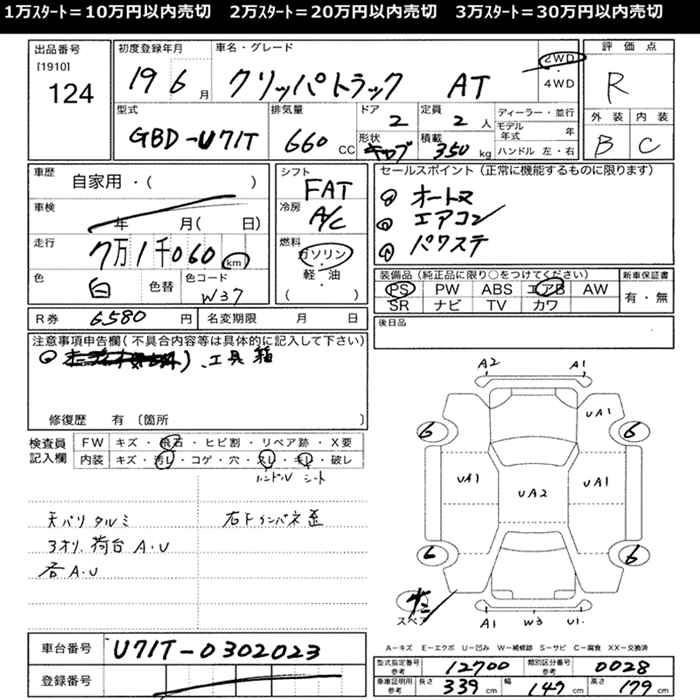 1万ｽﾀｰﾄ＝10万円以内売切　2万ｽﾀｰﾄ＝20万円以内売切　3万ｽﾀｰﾄ＝30万円以内売切
出品番号
[1910]
124
初度登録年月
19 6 月
車名・グレード
クリッパトラック AT
2WD
・
4WD
評価点
R
外装 内装
B C
型式
GBD-U71T
排気量
660 CC
ドア
2
形状
キャブ
定員
2 人
積載
350 kg
ディーラー・並行
モデル年式 年
ハンドル 左・右
車歴
自家用・( )
車検
年 月( 日)
走行
7万1千060 km
色
白
色替
色コード
W37
シフト
FAT
冷房
A/C
燃料
ガソリン
・
軽・油
( )
セールスポイント（正常に機能するものに限ります）
オートマ
エアコン
パワステ
装備品（純正品に限り○をつけてください）
PS PW ABS エアB AW
SR ナビ TV カワ
新車保証書
有・無
R券 6,580 円
名変期限 月 日
後日品
注意事項申告欄(不具合内容等は具体的に記入して下さい)
、工具箱
修復歴 有 〔箇所 〕
検査員記入欄
FW キズ・飛石・ヒビ割・リペア跡・X要
内装 キズ・汚レ・コゲ・穴・スレ・キレ・破レ
ハンドル シート
天バリタルミ
3オリ、荷台 A.U
各A.U
A2 A1
UA1
6 6
UA1 UA2 UA1
6 6
スペア
A1 W3 U1
A－キズ E－エクボ U－凹み W－補修跡 S－サビ C－腐食 XX－交換済
車台番号 U71T-0302023
登録番号
型式指定番号 参考 12700 類別区分番号 参考 0028
車庫証明用 参考 長さ 339 cm 幅 147 cm 高さ 179 cm